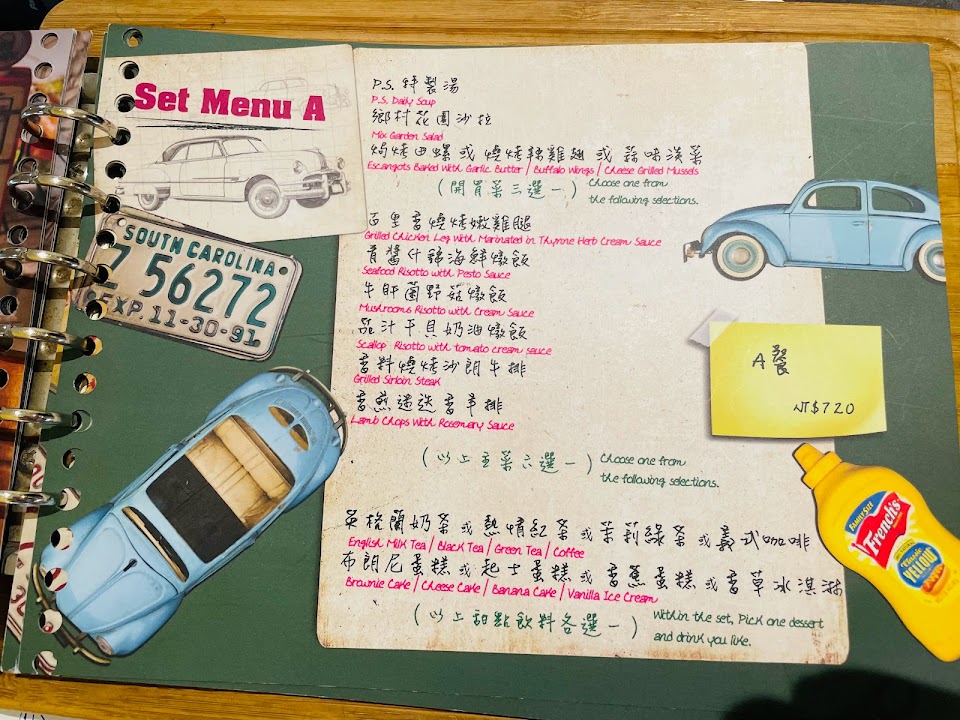 Set Menu A
P.S. 特製湯
P.S. Daily Soup
鄉村花園沙拉
Mix Garden Salad
焗烤田螺 或 燒烤辣雞翅 或 蒜味淡菜
Escargots Baked with Garlic Butter / Buffalo Wings / Cheese Grilled Mussels
(開胃菜三選一) Choose one from
the following selections.
百里香燒烤嫩雞腿
Grilled Chicken Leg with Marinated in Thynne Herb Cream Sauce
青醬什錦海鮮燉飯
Seafood Risotto with Pesto Sauce
牛肝菌野菇燉飯
Mushrooms Risotto with Cream Sauce
茄汁干貝奶油燉飯
Scallop Risotto with tomato cream sauce
香料燒烤沙朗牛排
Grilled Sirloin Steak
香煎迷迭香羊排
Lamb Chops with Rosemary Sauce
(以上主菜六選一) Choose one from
the following selections.
英格蘭奶茶 或 熱情紅茶 或 茉莉綠茶 或 義式咖啡
English Milk Tea / Black Tea / Green Tea / Coffee
布朗尼蛋糕 或 起士蛋糕 或 香蕉蛋糕 或 香草冰淇淋
Brownie Cake / Cheese Cake / Banana Cake / Vanilla Ice Cream
(以上甜點飲料各選一) Within the set, Pick one dessert
and drink you like.
SOUTH CAROLINA
Z 56272
EXP. 11-30-91
A餐
NT$720
FAMILY SIZE
French's
Classic
YELLOW